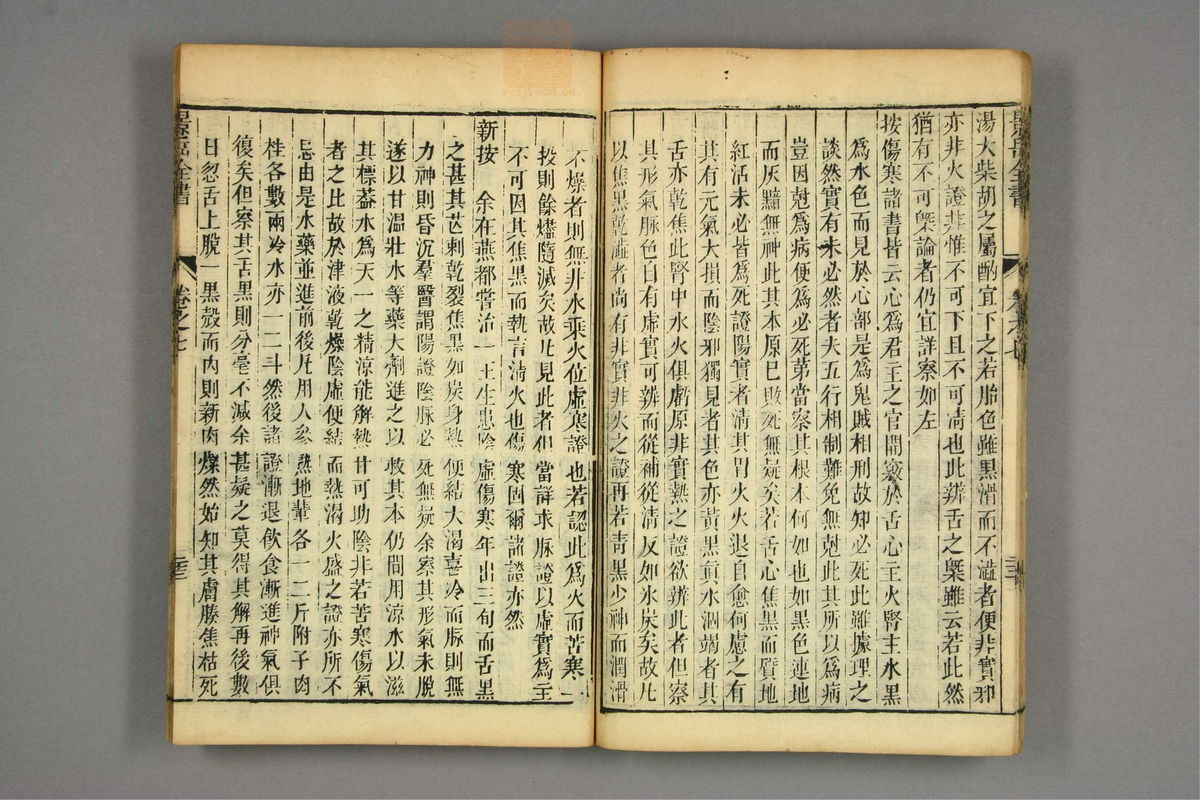 景岳全書
卷之七
湯大柴胡之屬酌宜下之若胎色雖黑滑而不澁者便非實邪
亦非火證非惟不可下且不可清也此辨舌之槩雖云若此然
猶有不可槩論者仍宜詳察如左
按傷寒諸書皆云心爲君主之官開竅於舌心主火腎主水黑
爲水色而見於心部是爲鬼賊相刑故知必死此雖據理之
談然實有未必然者夫五行相制難免無尅此其所以爲病
豈因尅爲病便爲必死第當察其根本何如也如黑色連地
而灰黯無神此其本原已敗死無疑矣若舌心焦黑而質地
紅活未必皆爲死證陽實者清其胃火火退自愈何慮之有
其有元氣大損而陰邪獨見者其色亦黃黑眞水涸竭者其
舌亦乾焦此腎中水火俱虧原非實熱之證欲辨此者但察
其形氣脉色自有虛實可辨而從補從清反如氷炭矣故凡
以焦黑乾澁者尚有非實非火之證再若青黑少神而潤滑
不燥者則無非水乘火位虛寒證也若認此爲火而苦寒一
投則餘燼隨滅矣故凡見此者但當詳求脉證以虛實爲主
不可因其焦黑而執言清火也傷寒固爾諸證亦然
新按　余在燕都嘗治一王生患陰虛傷寒年出三旬而舌黑
之甚其芒刺乾裂焦黑如炭身熱便結大渴喜冷而脉則無
力神則昏沉羣醫謂陽證陰脉必死無疑余察其形氣未脫
遂以甘溫壯水等藥大劑進之以救其本仍間用凉水以滋
其標葢水爲天一之精凉能解熱甘可助陰非若苦寒傷氣
者之比故於津液乾燥陰虛便結而熱渴火盛之證亦所不
忌由是水藥並進前後凡用人參熟地輩各一二斤附子肉
桂各數兩冷水亦一二斗然後諸證漸退飲食漸進神氣俱
復矣但察其舌黑則分毫不減余甚疑之莫得其解再後數
日忽舌上脫一黑殼而內則新肉燦然始知其膚腠焦枯死
景岳全書
卷之七